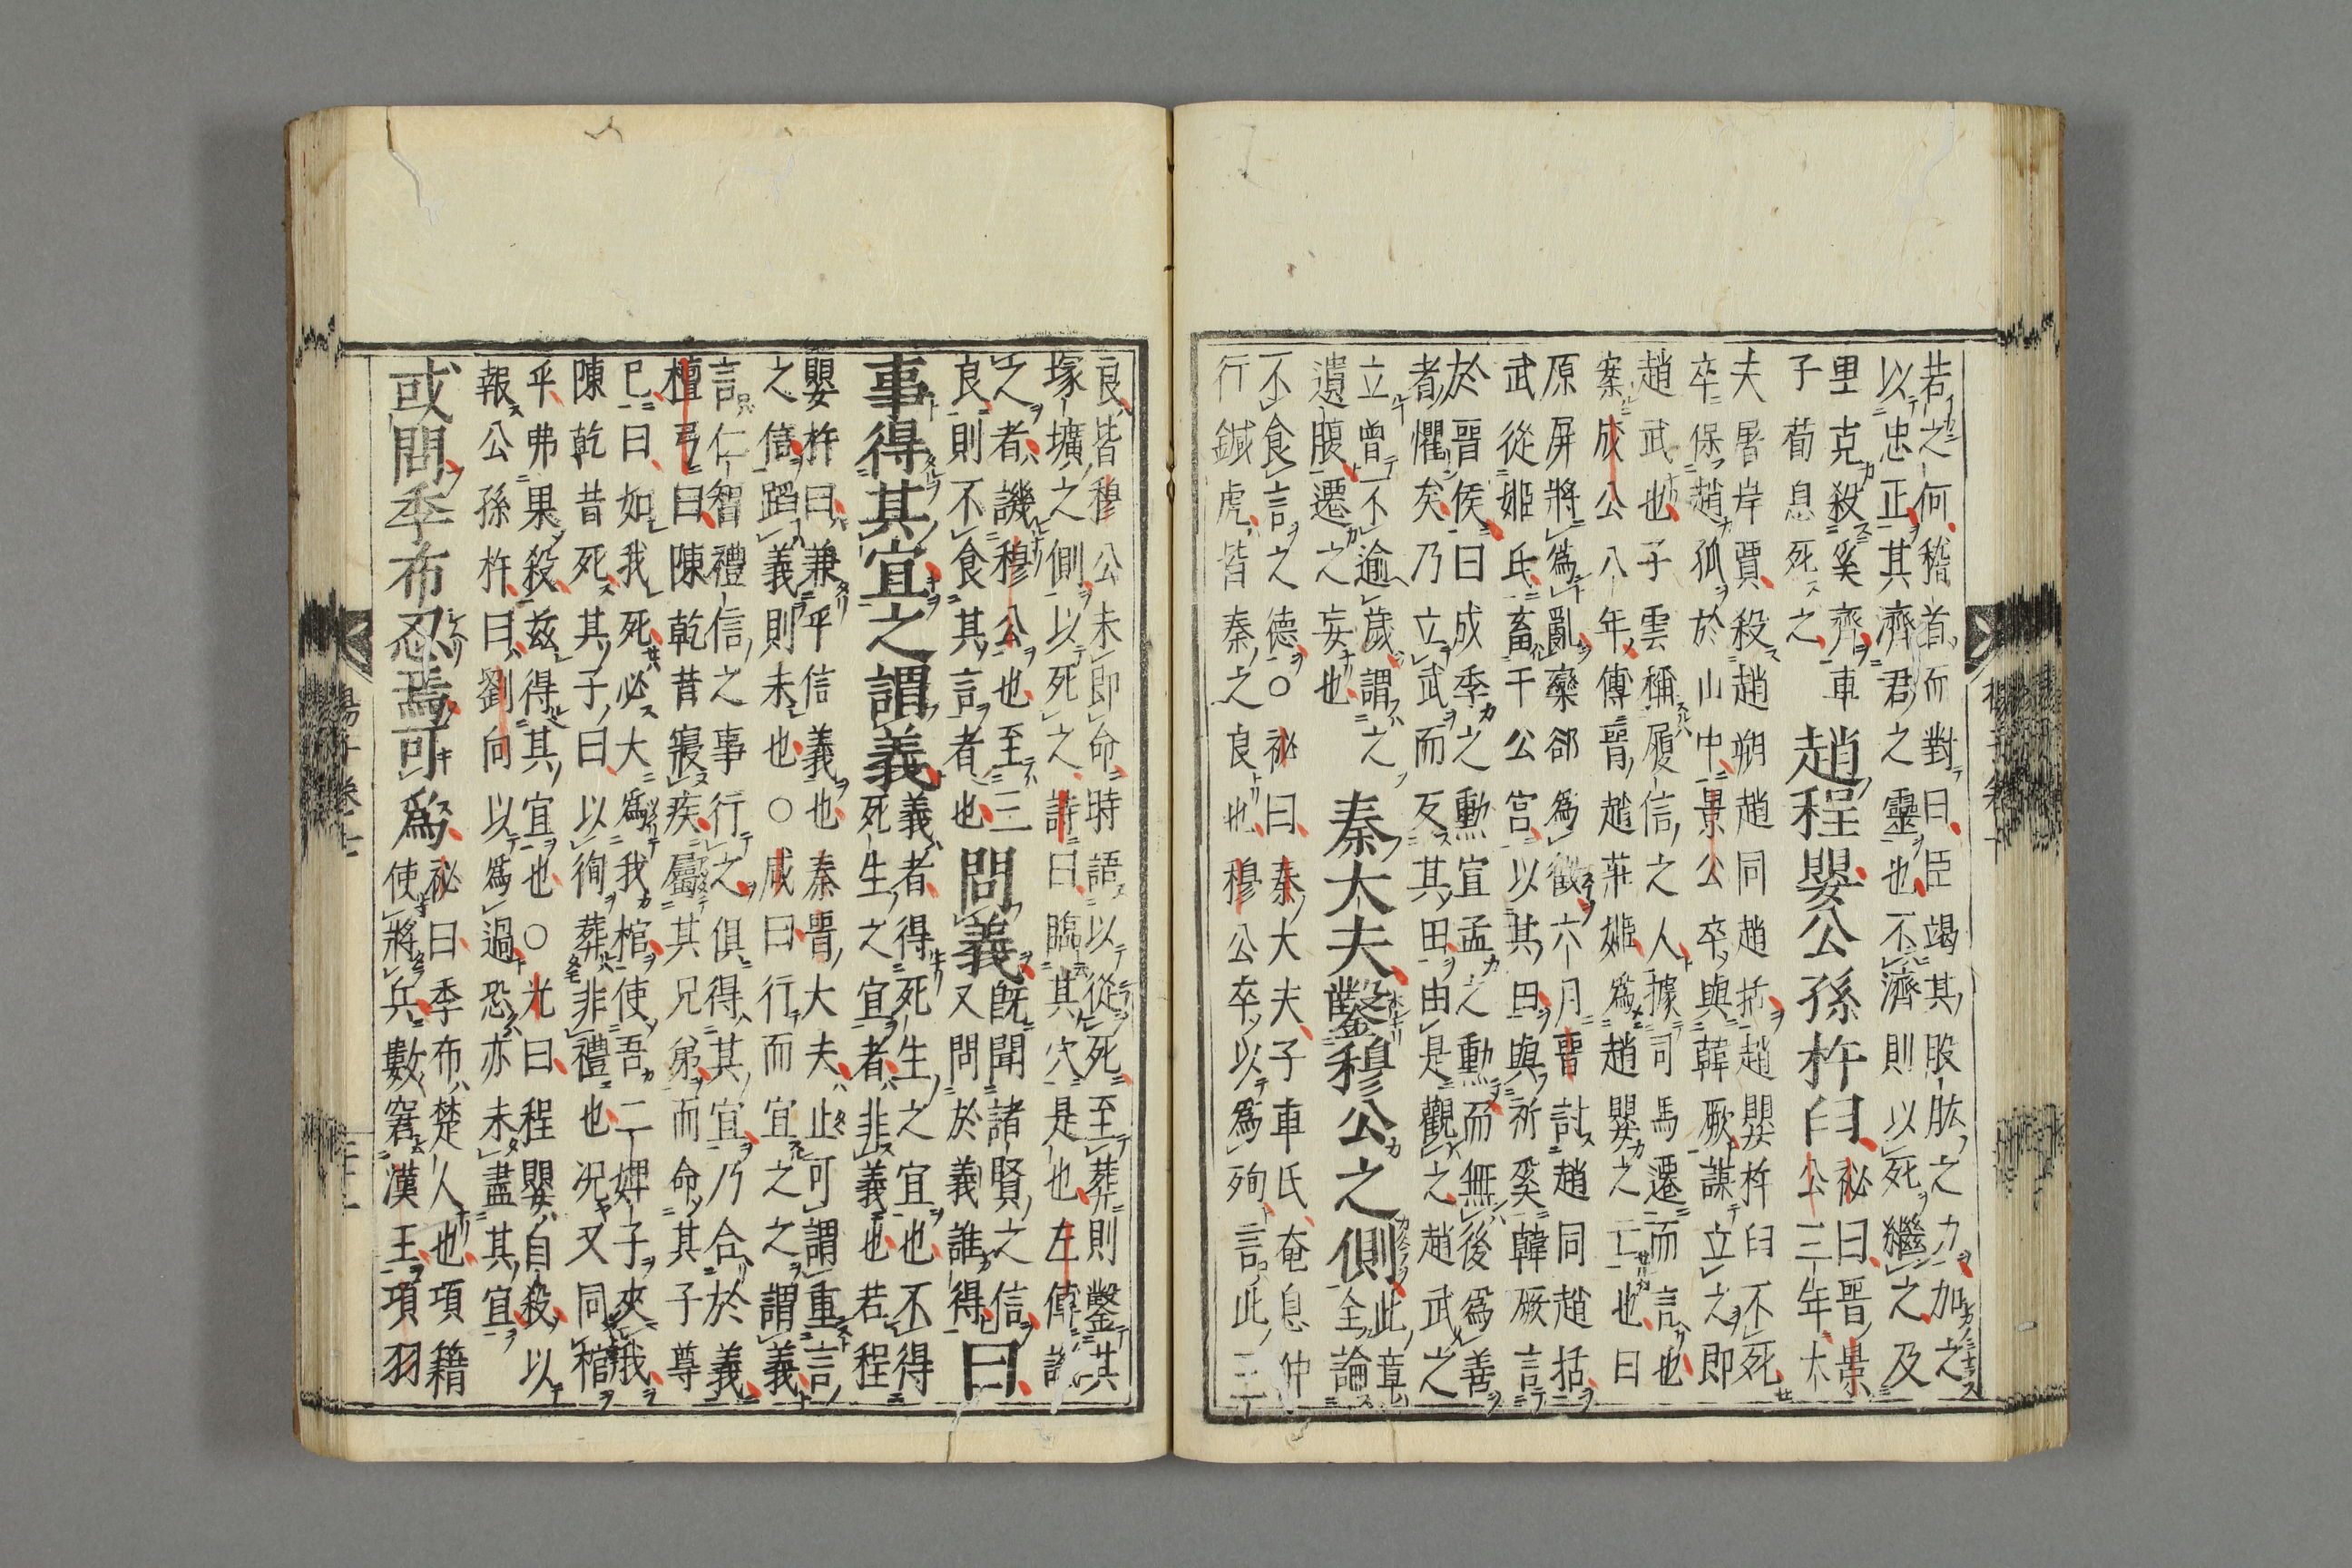 若之何稽首而對曰臣竭其股肱之力加之
以忠正其濟君之靈也不濟則以死繼之及
里克殺奚齊車
子荀息死之
趙程嬰公孫杵臼
祕曰晉景
公三年大
夫屠岸賈殺趙朔趙同趙括趙嬰杵臼不死
卒保趙孤於山中景公卒與韓厥謀立之即
趙武也子雲稱履信之人據司馬遷而言也
案成公八年傳晉趙莊姬爲趙嬰之亡也曰
原屏將爲亂欒郤爲徵六月晉討趙同趙括
武從姬氏畜于公宮以其田與祈奚韓厥言
於晉侯曰成季之勳宣孟之勳而無後爲善
者懼矣乃立武而反其田由是觀之趙武之
立曾不逾歲謂之
遺腹遷之妄也
秦大夫鑿穆公之側
此章
全論
不食言之德○祕曰秦大夫子車氏奄息仲
行鍼虎皆秦之良也穆公卒以爲殉言此三
良皆穆公未即命時語以從死至葬則鑿其
塚壙之側以死之詩曰臨其穴是也左傳譏
之者譏穆公也至三
良則不食其言者也
問義
既聞諸賢之信
又問於義誰得
曰
事得其宜之謂義
義者得死生之宜也不得
死生之宜者非義也若程
嬰杵曰兼乎信義也秦晉大夫止可謂重言
之信蹈義則未也○咸曰行而宜之之謂義
言仁智禮信之事行之俱得其宜乃合於義
檀弓曰陳乾昔寢疾屬其兄弟而命其子尊
巳曰如我死必大爲我棺使吾二婢子夾我
陳乾昔死其子曰以徇葬非禮也况又同棺
乎弗果殺兹得其宜也○光曰程嬰自殺以
報公孫杵曰劉向以爲過恐亦未盡其宜
或問季布忍焉可爲
祕曰季布楚人也項籍
使將兵數窘漢王項羽